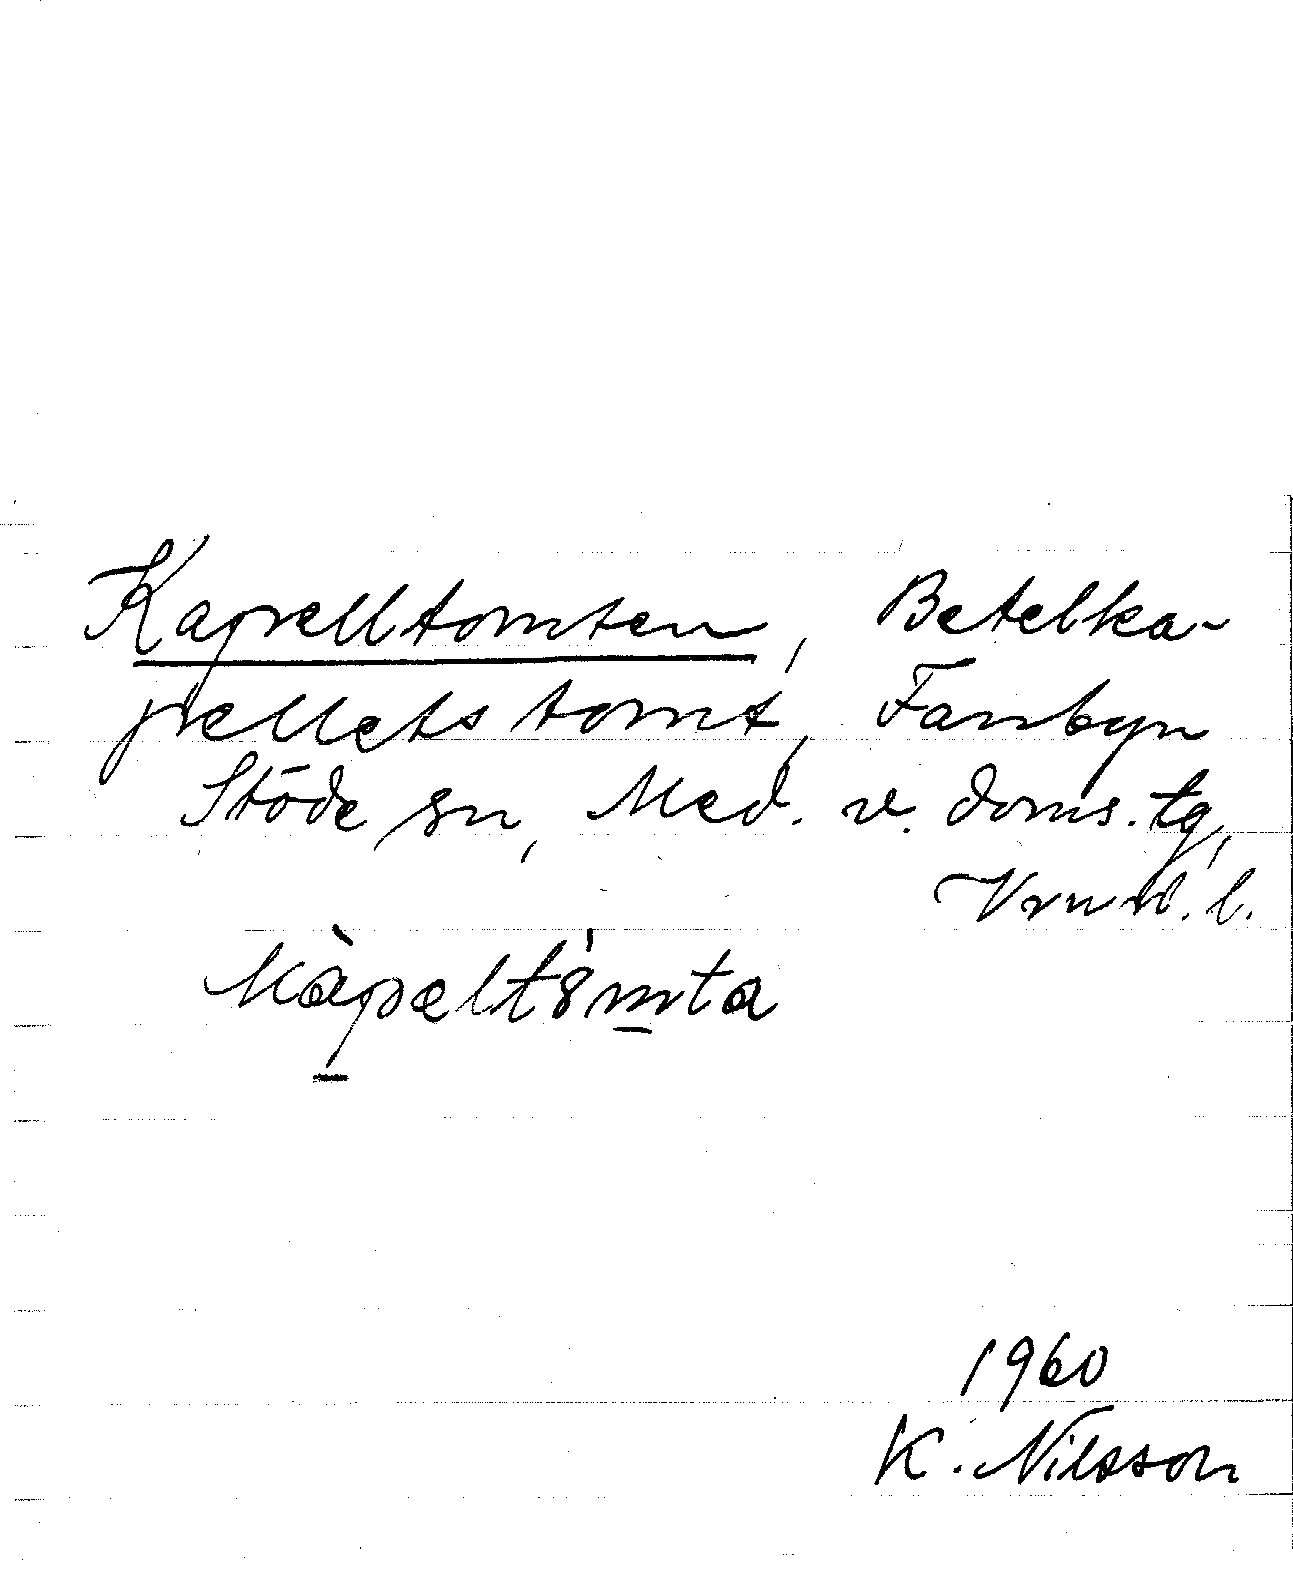 Kapelltomten, Betelka-
pellets tomt, Fanbyn
Stöde sn, Med. v. doms. tg,
Vrnld. l.
kàpælt8mta
1960
K. Nilsson